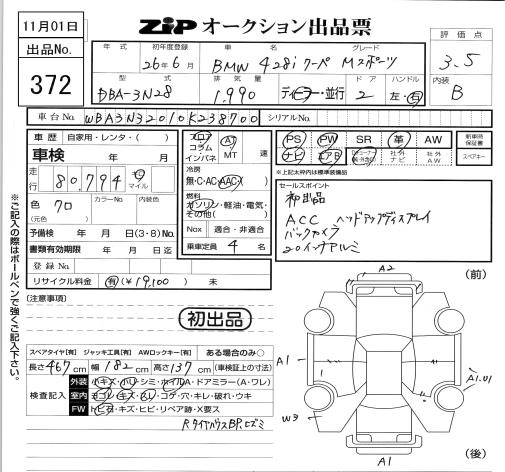 11月01日
ZIP オークション出品票
出品No.
372
年式 初年度登録 車名 グレード 評価点
26年6月 BMW 428i クーペ Mスポーツ 3.5
型式 排気量 ドア ハンドル 内装
DBA-3N28 1,990 ディーラー・並行 2 左・右 B
車台No. WBA3N32010K238700 シリアルNo.
車歴 自家用・レンタ・( )
車検 年 月
走行 80,794 キロ マイル
色 クロ カラーNo. 内装色
(元色)
予備検 年 月 日(3・8)
書類有効期限 年 月 日迄
登録No.
リサイクル料金 有(¥19,100) 未
フロア コラム インパネ AT MT 速
冷房
無・C・AC・AAC( )
燃料
ガソリン・軽油・電気・その他( )
Nox 適合・非適合
乗車定員 4 名
PS PW SR 革 AW 新車時保証書
ナビ エアB 社外ナビ 社外AW スペアキー
※上記太枠内は標準装備品
セールスポイント
初出品
ACC ヘッドアップディスプレイ
バックカメラ
20インチアルミ
[注意事項]
初出品
スペアタイヤ[有] ジャッキ工具[有] AWロックキー[有] ある場合のみ○
長さ 467 cm 幅 182 cm 高さ 137 cm (車検証上の寸法)
検査記入
外装 小キズ・小リ・シミ・ホイルA・ドアミラー(A・ワレ)
室内 ヨゴレ・キズ・スレ・コゲ・穴・キレ・破れ・ウキ
FW トビ石・キズ・ヒビ・リペア跡・X要ス
RタイヤハウスBP. ヒズミ
A2 (前)
A1
A1.U1
W3
A1 (後)
※ご記入の際はボールペンで強くご記入下さい。